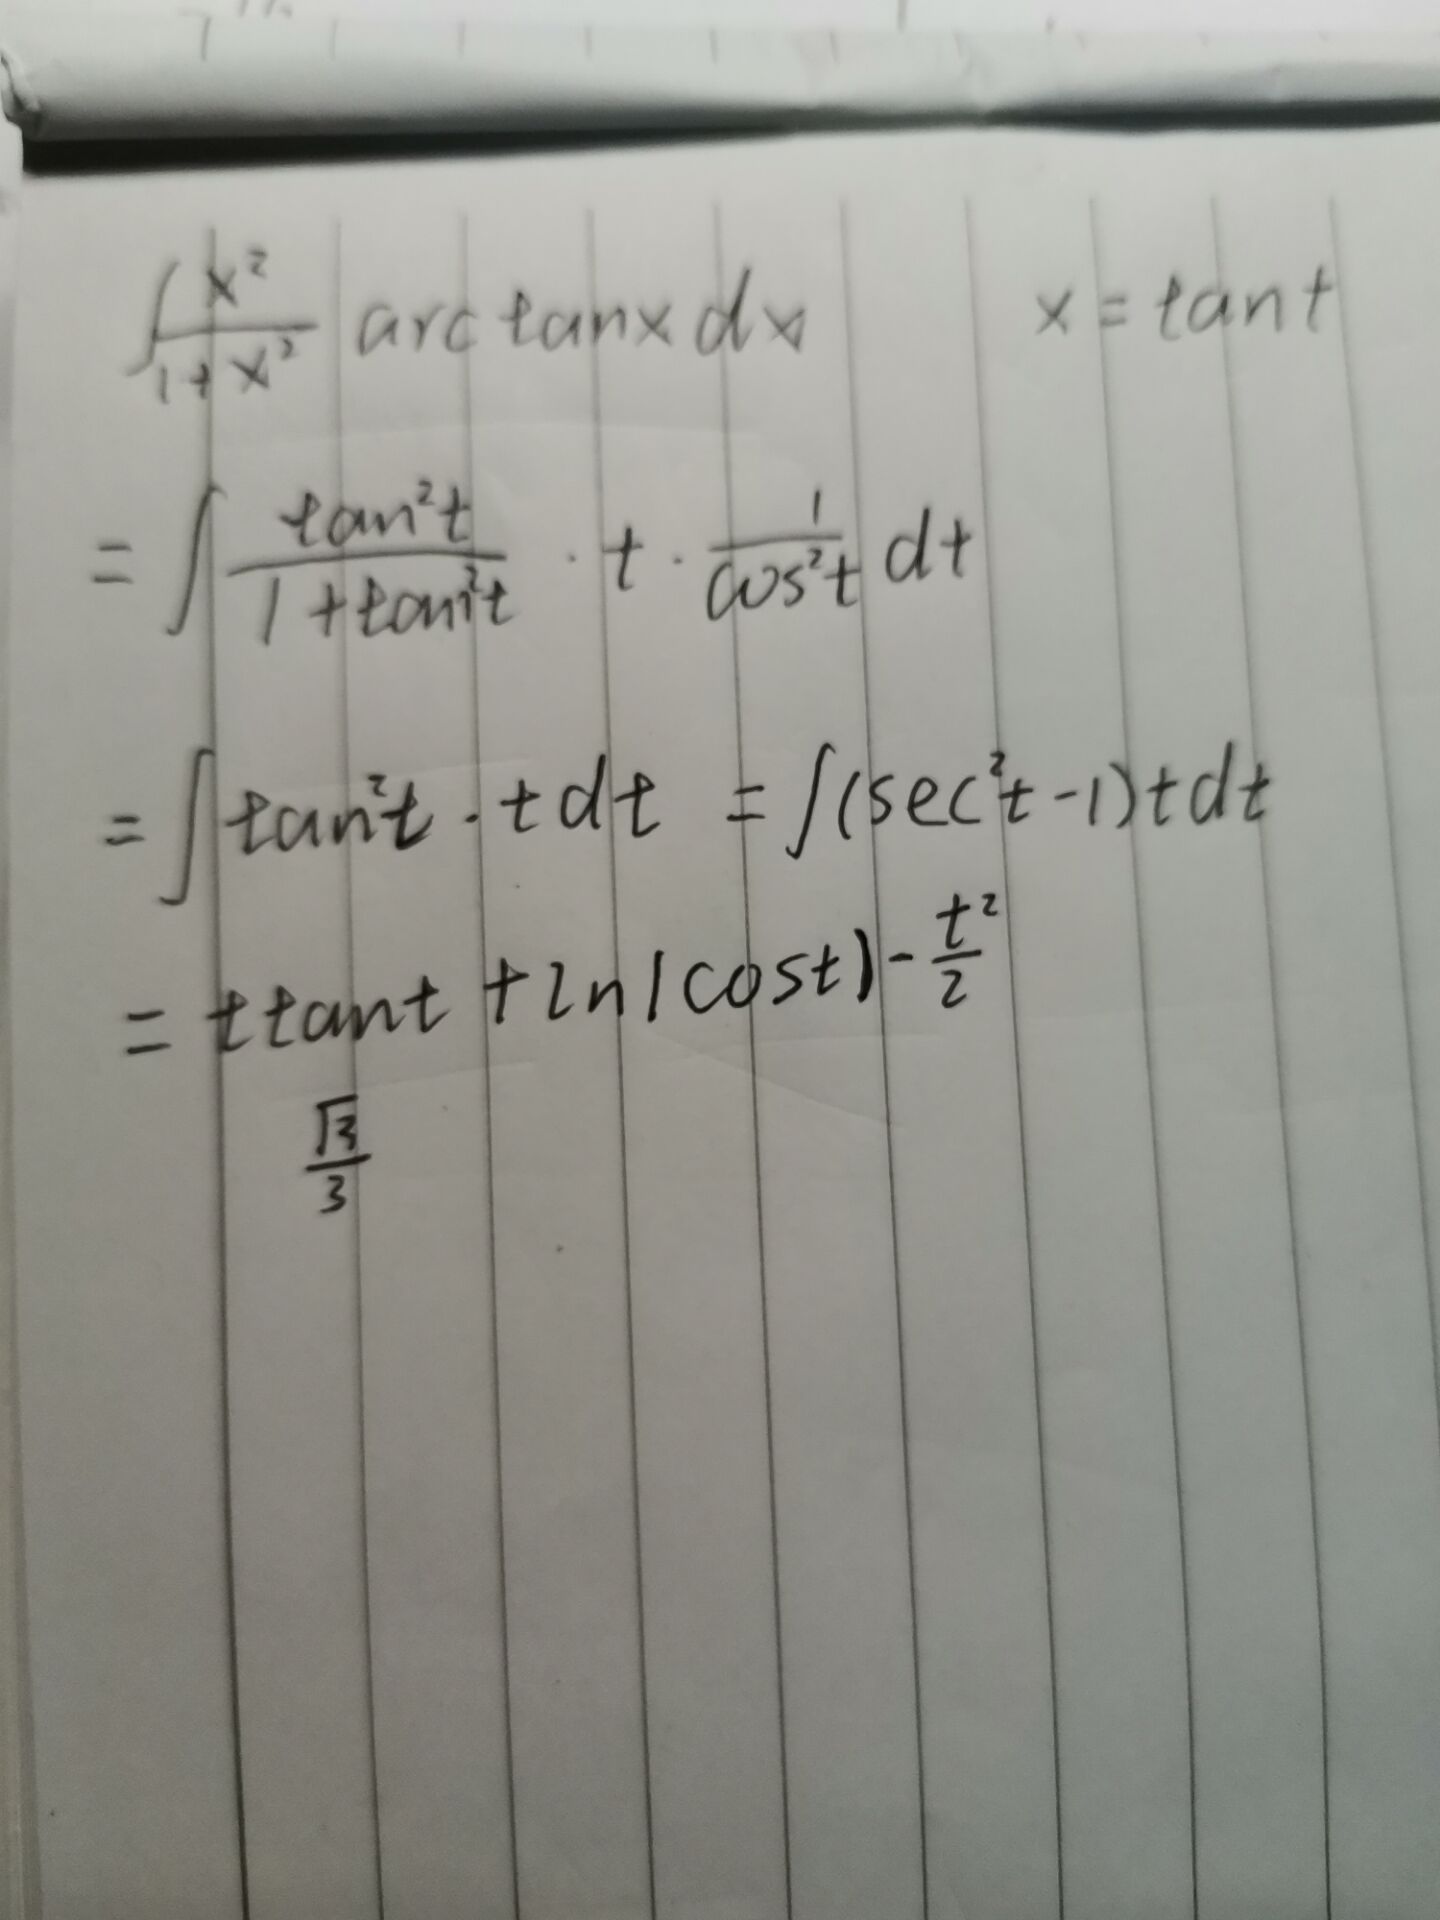 ∫ x²/(1+x²) arctanx dx    x = tant
= ∫ tan²t/(1+tan²t) · t · 1/cos²t dt
= ∫ tan²t · t dt = ∫(sec²t-1)tdt
= t tant + ln|cost| - t²/2
√3/3